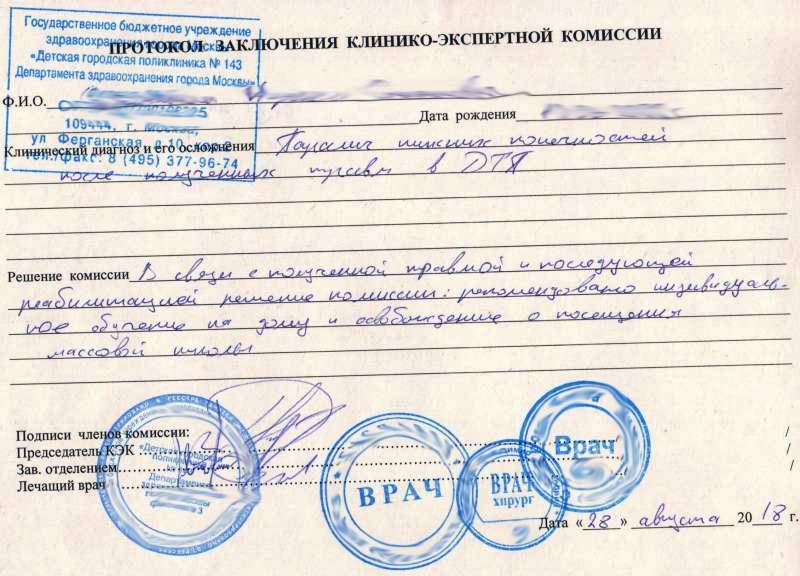 Государственное бюджетное учреждение
здравоохранения
ПРОТОКОЛ ЗАКЛЮЧЕНИЯ КЛИНИКО-ЭКСПЕРТНОЙ КОМИССИИ
«Детская городская поликлиника № 143
Департамента здравоохранения города Москвы»
Ф.И.О.
Дата рождения
109444, г. Москва,
ул Ферганская д.10,
тел./факс: 8 (495) 377-96-74
Клинический диагноз и его осложнения Паралич нижних конечностей
после полученных травм в ДТП
Решение комиссии В связи с полученной травмой и последующей
реабилитацией решение комиссии: рекомендовано индивидуаль-
ное обучение на дому и освобождение о посещения
массовой школы
Подписи членов комиссии:
Председатель КЭК
Зав. отделением
Лечащий врач
ВРАЧ
ВРАЧ
хирург
Врач
Дата «28» августа 2018 г.